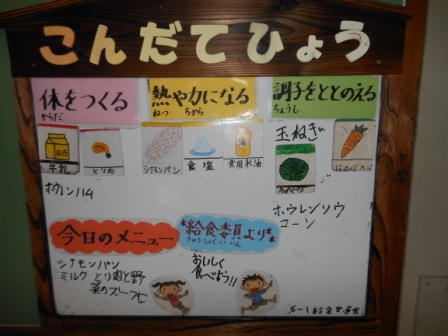 こんだてひょう
体をつくる
からだ
熱や力になる
ねつ ちから
調子をととのえる
ちょうし
玉ねぎ
牛乳
とり肉
シナモンパン
食塩
食用米油
ホウレンソウ
コーン
今日のメニュー
シナモンパン
ミルク とり肉と野
菜のスープに
給食委員より
きゅうしょくいいん
おいしく
食べよう!!